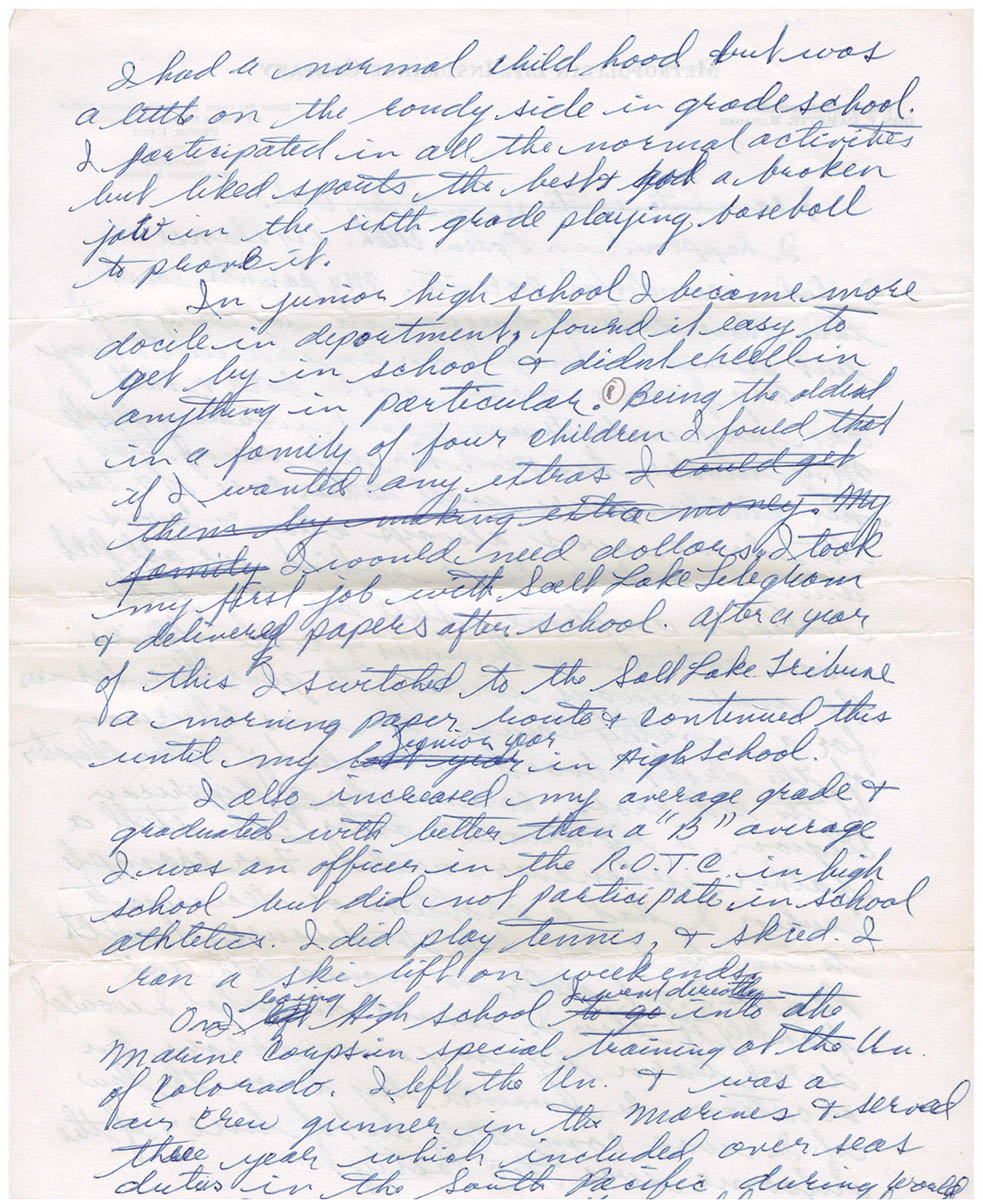 I had a normal child hood but was
a little on the roudy side in grade school.
I participated in all the normal activities
but liked sports the best & had a broken
jaw in the sixth grade playing baseball
to prove it.
In junior high school I became more
docile in department, found it easy to
get by in school & didnt excell in
anything in particular. Being the oldest
in a family of four children I fould that
if I wanted any extras I could get
them by making extra money. My
family I would need dollars. I took
my first job with Salt Lake Telegram
& delivered papers after school. after a year
of this I switched to the Salt Lake Tribune
a morning paper route & continued this
until my last year junior year in High School.
I also increased my average grade &
graduated with better than a "B" average
I was an officer in the R.O.T.C. in high
school but did not participate in school
athletics. I did play tennis, & skied. I
ran a ski lift on weekends.
On leaving High school to go I went directly into the
Marine Corps in special training at the Un.
of Colorado. I left the Un. & was a
air crew gunner in the Marines & served
three year which included over seas
duties in the South Pacific during World